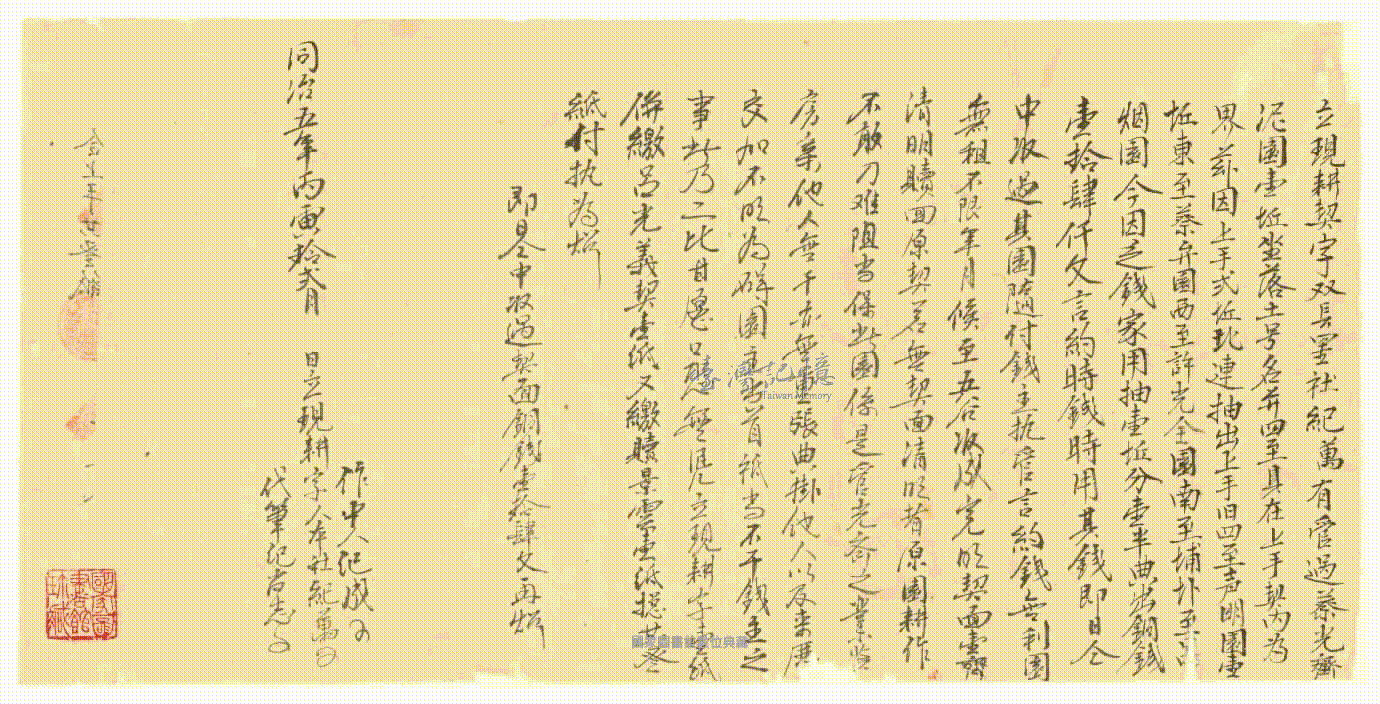 立現耕契字双貝墅社紀萬有管過蔡光齊
泥園壹坵坐落土号名并四至具在上手契內為
界茲因上手弍坵玭連抽出上手旧四至声明園壹
坵東至蔡弁園西至許光全園南至埔圤至
烟園今因乏錢家用抽壹坵分壹半典出銅錢
壹拾肆仟文言約時錢時用其錢即日仝
中收過其園隨付錢主执管言約錢無利園
無租不限年月候至五谷收成完明契面壹齊
清明贖回原契若無契面清明者原園耕作
不敢刁难阻当保此園係是管光齊之業與
房亲他人無干亦無重張典掛他人以及来歷
交加不明為碍園主出首抵当不干錢主之
事此乃二比甘愿口恐無凴立現耕字壹紙
併繳呂光義契壹紙又繳贖景雲壹紙摠共叁
紙付执為炤
即日仝中收過契面銅錢壹拾肆文再炤
作中人紀成
同治五年丙寅拾弍月 日立現耕字人本社紀萬
代筆紀清志
臺灣記憶
Taiwan Memory
國家圖書館數位典藏
國家圖書館珍藏